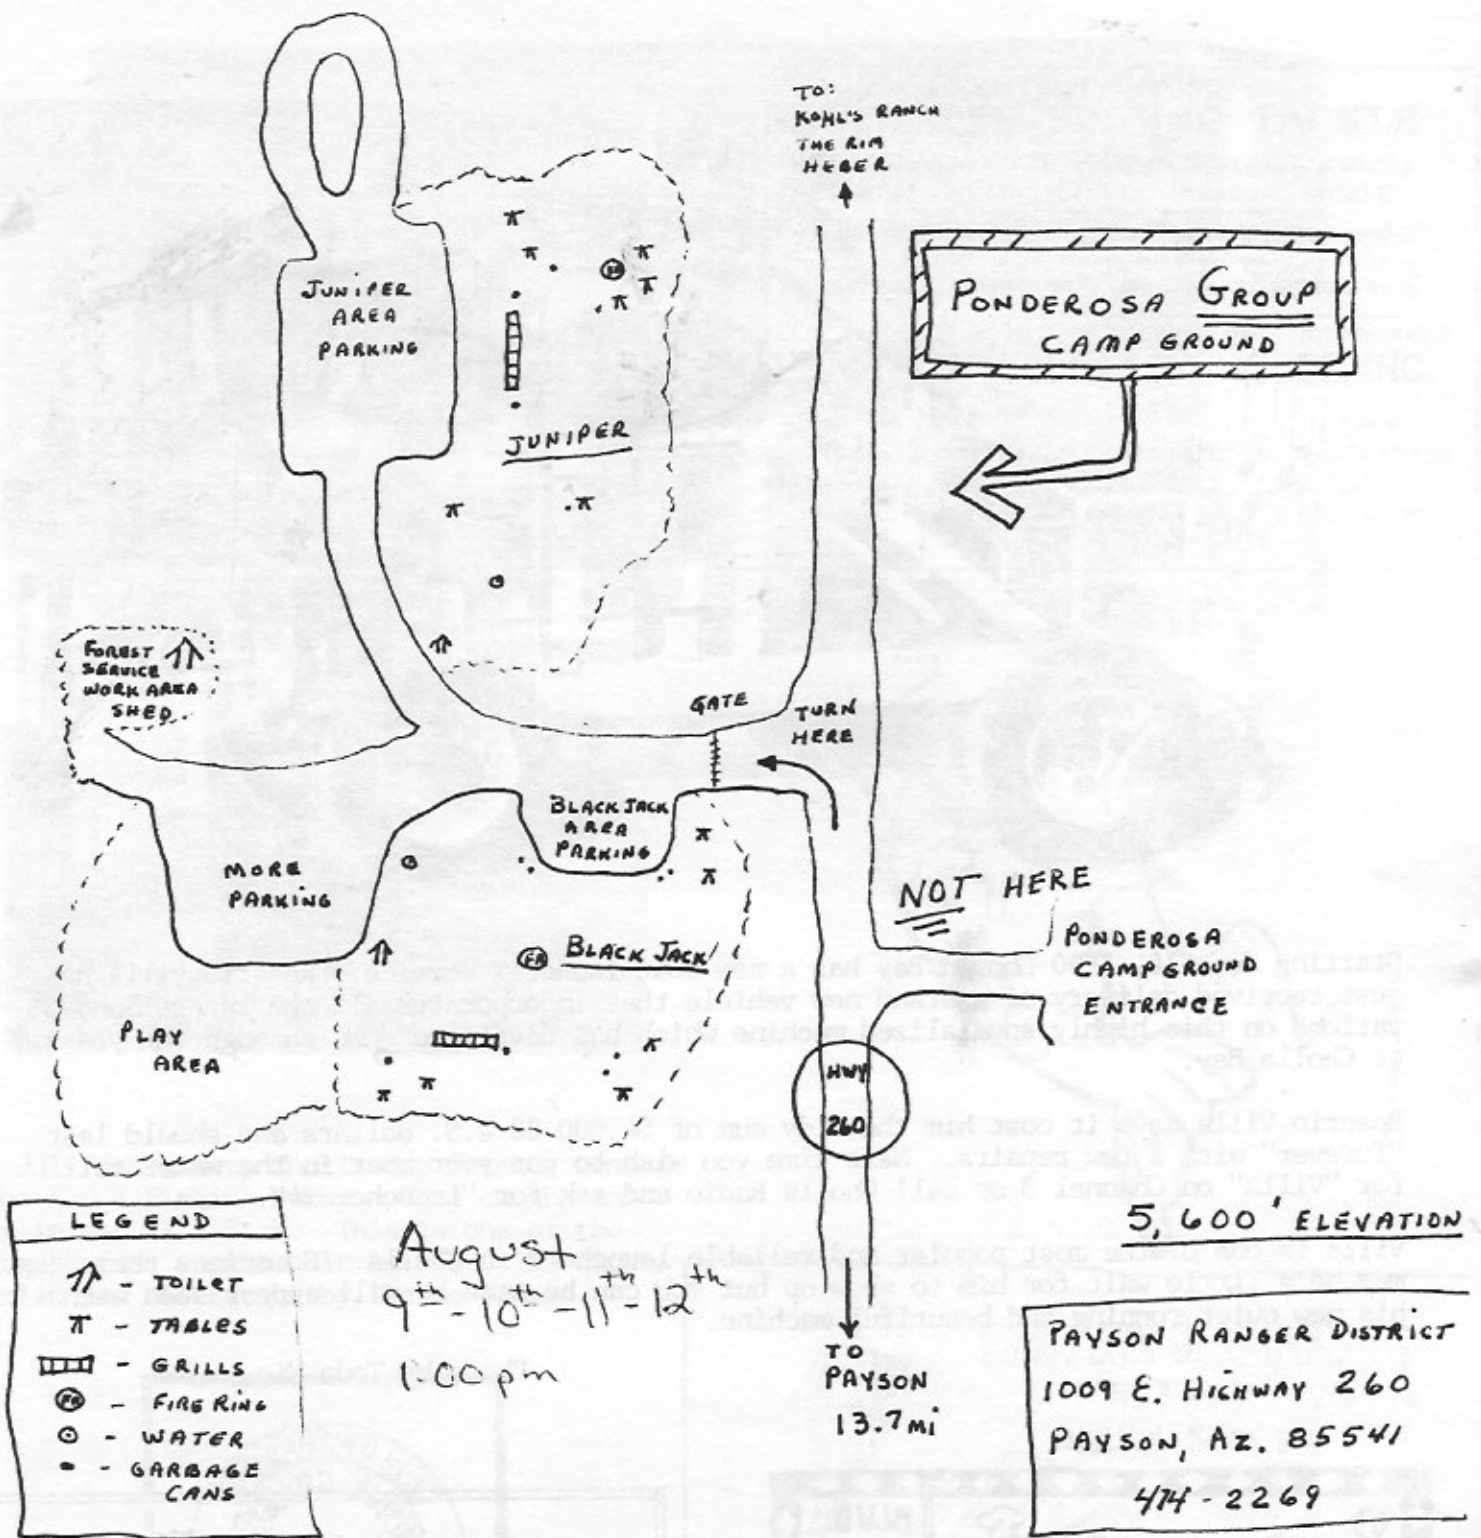 TO:
KOHL'S RANCH
THE RIM
HEBER
PONDEROSA GROUP
CAMP GROUND
JUNIPER
AREA
PARKING
JUNIPER
FOREST
SERVICE
WORK AREA
SHED
GATE
TURN
HERE
BLACK JACK
AREA
PARKING
MORE
PARKING
NOT HERE
PONDEROSA
CAMPGROUND
ENTRANCE
FR
BLACK JACK
PLAY
AREA
HWY
260
LEGEND
- TOILET
- TABLES
- GRILLS
FR - FIRE RING
- WATER
- GARBAGE
CANS
August
9th - 10th - 11th - 12th
1:00 pm
TO
PAYSON
13.7 mi
5,600' ELEVATION
PAYSON RANGER DISTRICT
1009 E. HIGHWAY 260
PAYSON, AZ. 85541
474-2269